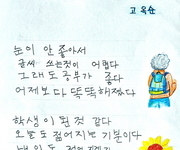 고 옥순
눈이 안 좋아서
글씨 쓰는것이 어렵다
그래도 공부가 좋다
어제보다 똑똑해졌다
학생이 된것 같다
오늘도 젊어지는 기분이다